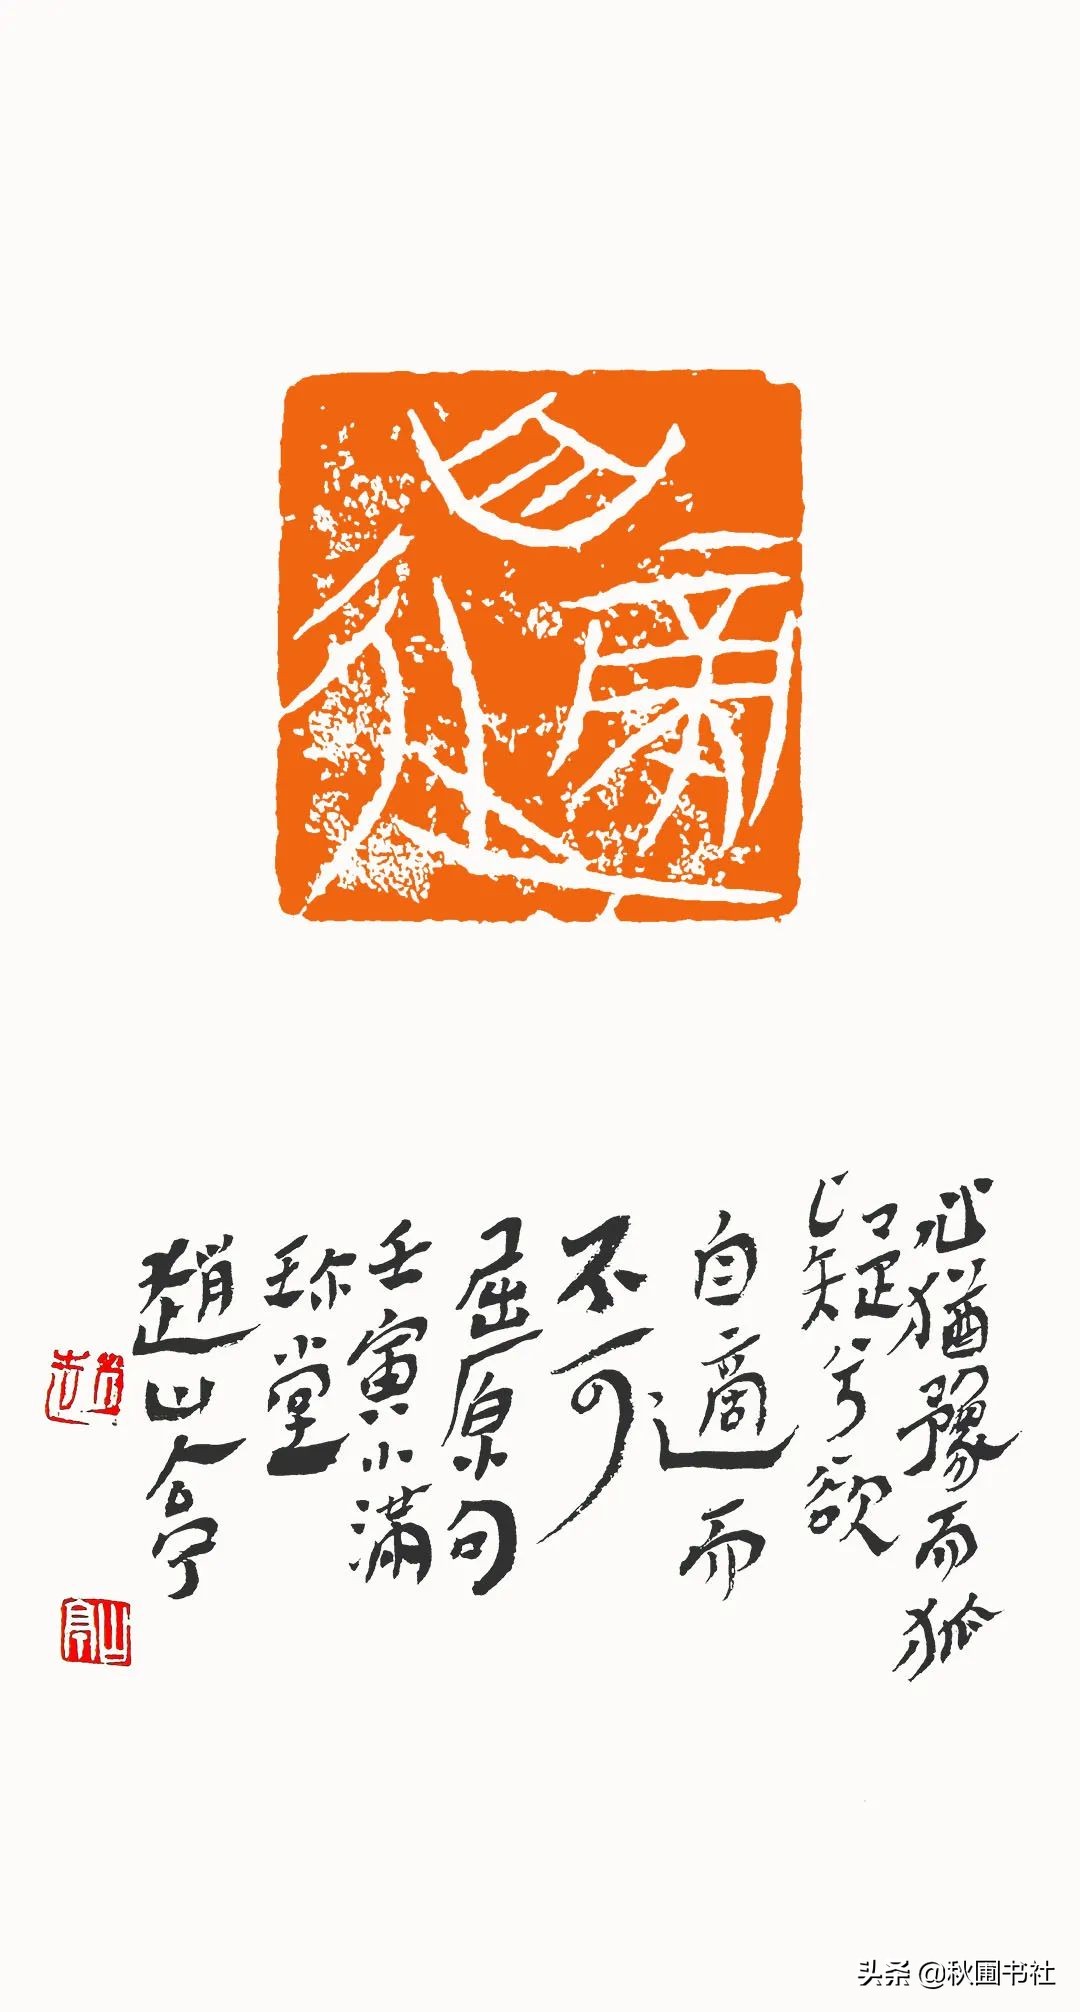 自適
心猶豫而狐
疑兮欲
自適而
不可
屈原句
壬寅小滿
珎堂
趙山亭
山亭
头条 @秋圃书社